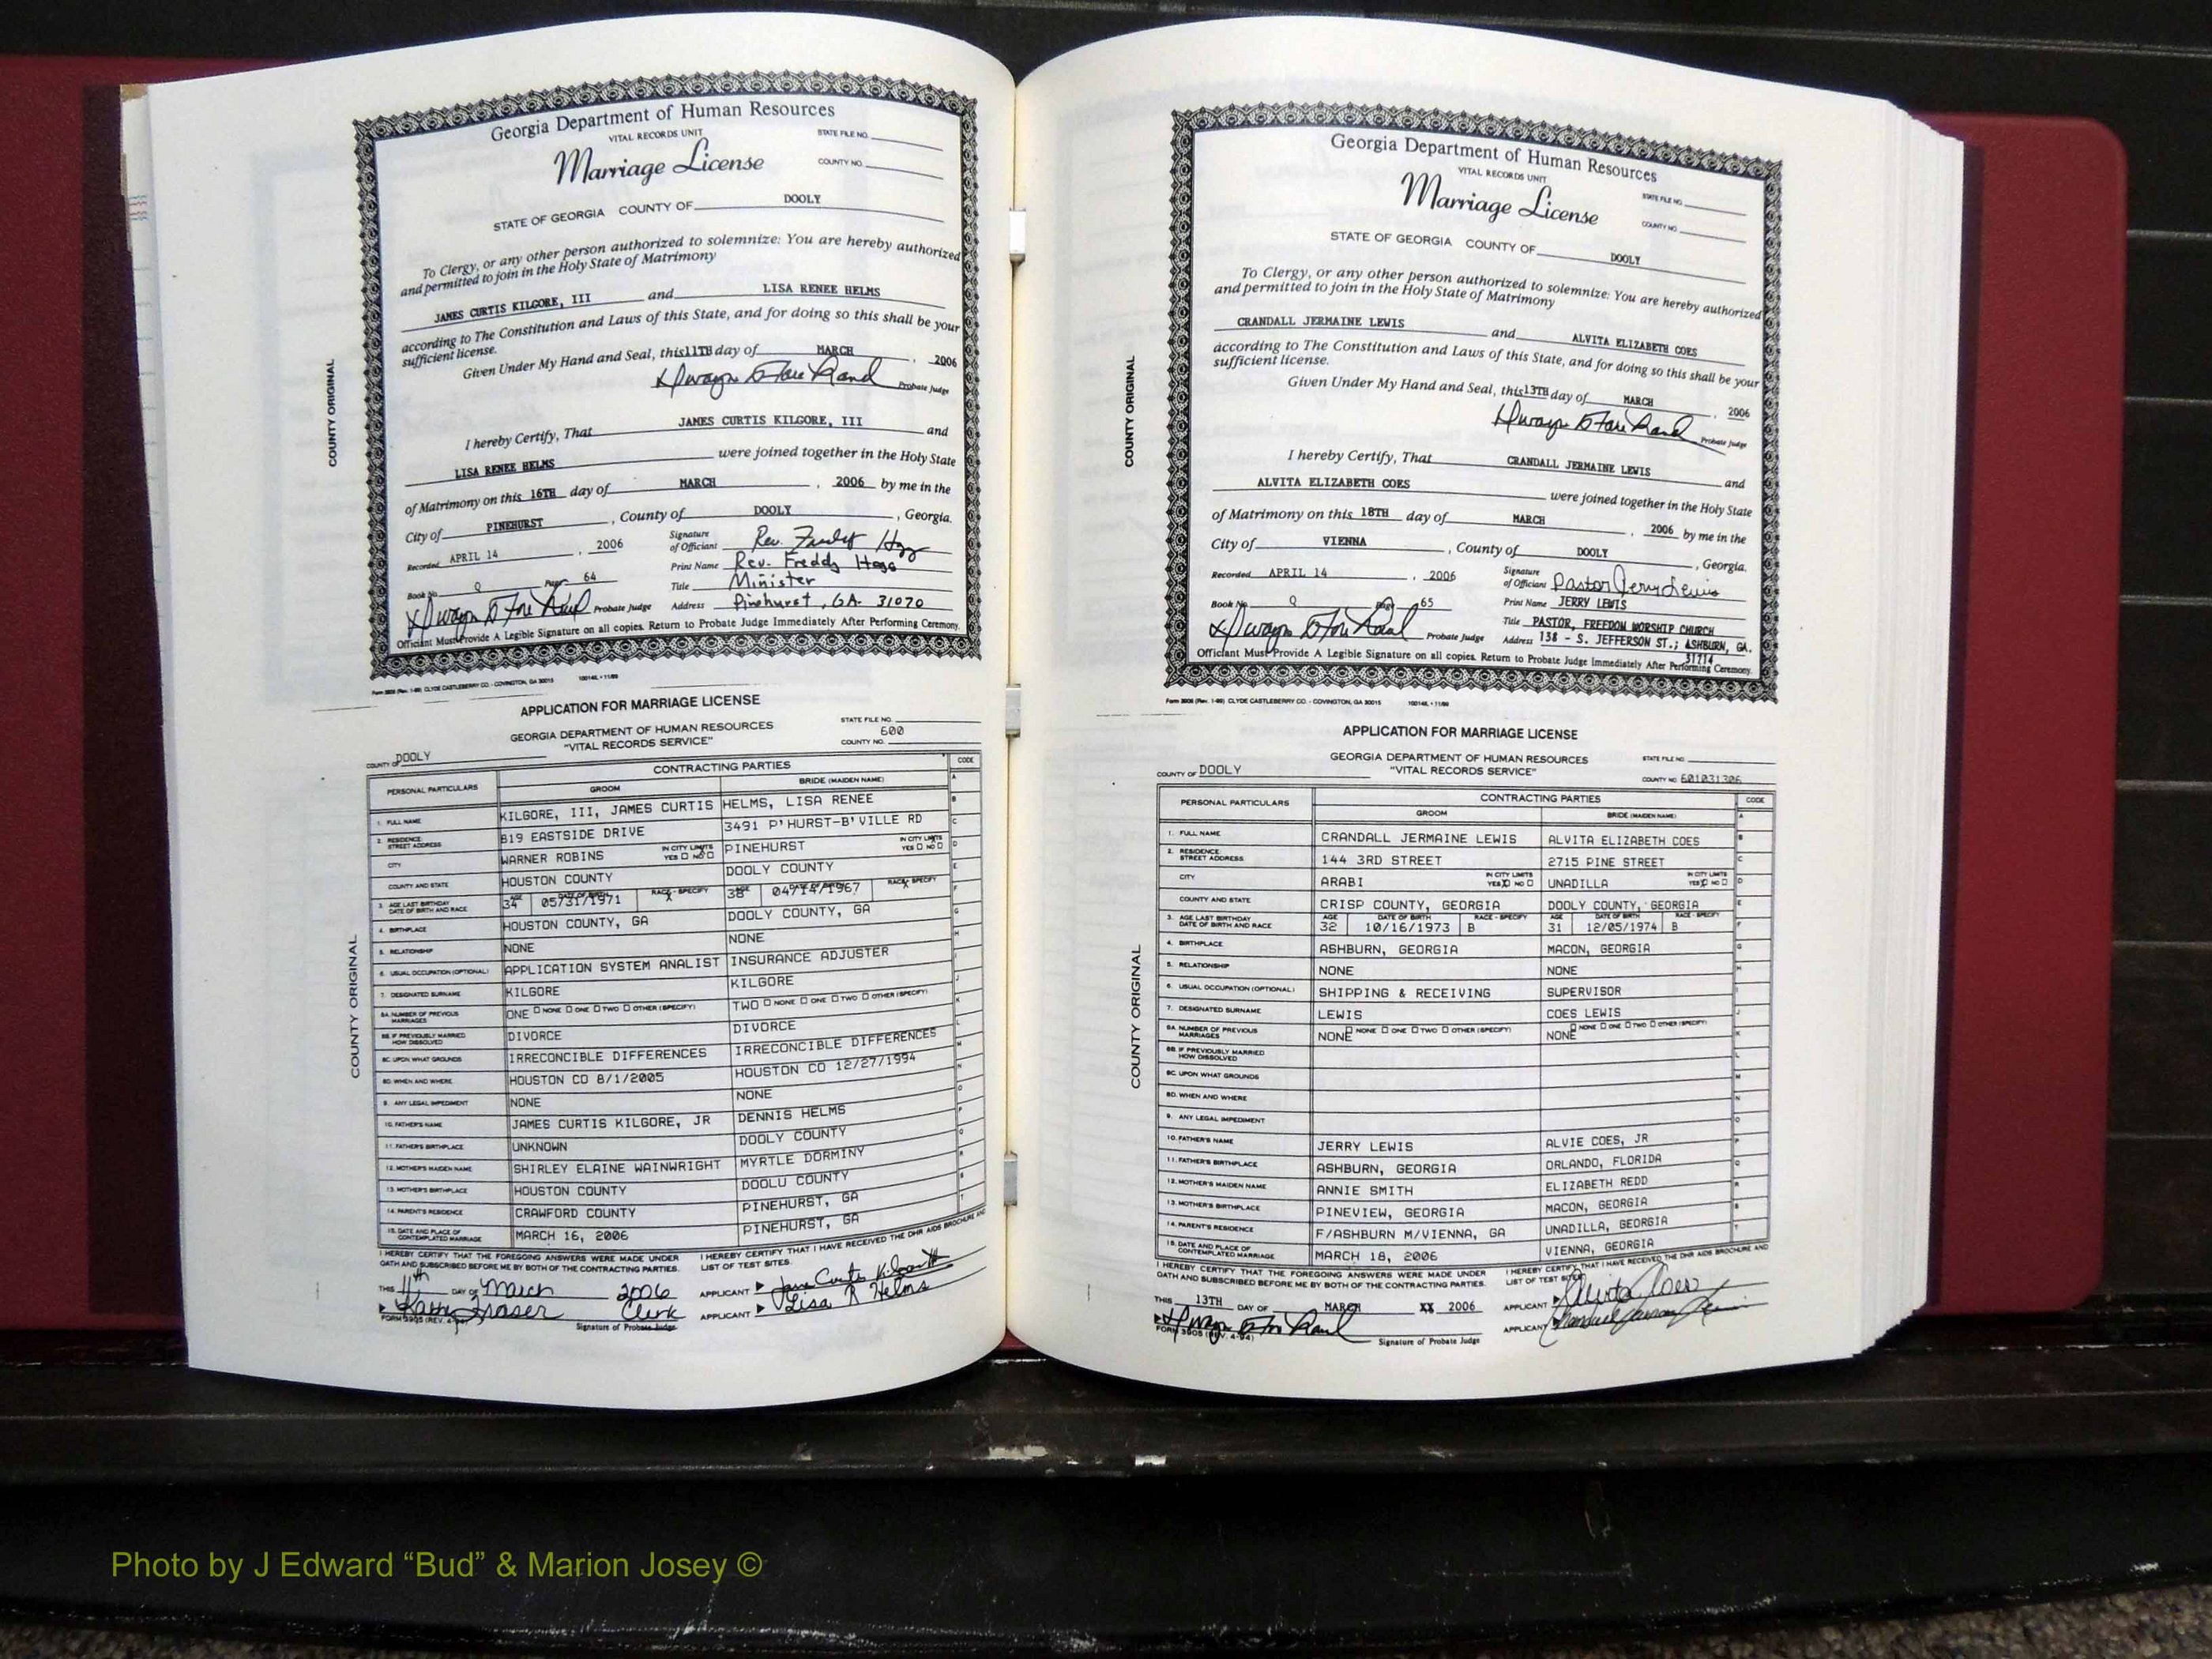 Georgia Department of Human Resources
VITAL RECORDS UNIT
STATE FILE NO.
Marriage License
COUNTY NO.
STATE OF GEORGIA COUNTY OF DOOLY
To Clergy, or any other person authorized to solemnize: You are hereby authorized
and permitted to join in the Holy State of Matrimony
JAMES CURTIS KILGORE, III and LISA RENEE HELMS
according to The Constitution and Laws of this State, and for doing so this shall be your
sufficient license.
Given Under My Hand and Seal, this 11TH day of MARCH, 2006
Probate Judge
I hereby Certify, That JAMES CURTIS KILGORE, III and
LISA RENEE HELMS were joined together in the Holy State
of Matrimony on this 16TH day of MARCH, 2006 by me in the
City of PINEHURST, County of DOOLY, Georgia.
Recorded APRIL 14, 2006 Signature of Officiant Rev.
Print Name Rev. Freddy
Book No. Q Page 64 Title Minister
Probate Judge Address Pinehurst, GA. 31070
Officiant Must Provide A Legible Signature on all copies. Return to Probate Judge Immediately After Performing Ceremony.
Form 3905 (Rev. 1-89) CLYDE CASTLEBERRY CO. - COVINGTON, GA 30015
COUNTY ORIGINAL
APPLICATION FOR MARRIAGE LICENSE
GEORGIA DEPARTMENT OF HUMAN RESOURCES
"VITAL RECORDS SERVICE"
STATE FILE NO.
600
COUNTY NO.
COUNTY OF DOOLY
PERSONAL PARTICULARS CONTRACTING PARTIES CODE
GROOM BRIDE (MAIDEN NAME)
1. FULL NAME KILGORE, III, JAMES CURTIS HELMS, LISA RENEE
2. RESIDENCE: STREET ADDRESS 819 EASTSIDE DRIVE 3491 P'HURST-B'VILLE RD
CITY WARNER ROBINS IN CITY LIMITS YES NO PINEHURST IN CITY LIMITS YES NO
COUNTY AND STATE HOUSTON COUNTY DOOLY COUNTY
3. AGE LAST BIRTHDAY DATE OF BIRTH AND RACE AGE 34 DATE OF BIRTH 05/31/1971 RACE - SPECIFY AGE 38 DATE OF BIRTH 04/14/1967 RACE - SPECIFY
4. BIRTHPLACE HOUSTON COUNTY, GA DOOLY COUNTY, GA
5. RELATIONSHIP NONE NONE
6. USUAL OCCUPATION (OPTIONAL) APPLICATION SYSTEM ANALIST INSURANCE ADJUSTER
7. DESIGNATED SURNAME KILGORE KILGORE
8A. NUMBER OF PREVIOUS MARRIAGES ONE NONE ONE TWO OTHER (SPECIFY) TWO NONE ONE TWO OTHER (SPECIFY)
8B. IF PREVIOUSLY MARRIED HOW DISSOLVED DIVORCE DIVORCE
8C. UPON WHAT GROUNDS IRRECONCIBLE DIFFERENCES IRRECONCIBLE DIFFERENCES
8D. WHEN AND WHERE HOUSTON CO 8/1/2005 HOUSTON CO 12/27/1994
9. ANY LEGAL IMPEDIMENT NONE NONE
10. FATHER'S NAME JAMES CURTIS KILGORE, JR DENNIS HELMS
11. FATHER'S BIRTHPLACE UNKNOWN DOOLY COUNTY
12. MOTHER'S MAIDEN NAME SHIRLEY ELAINE WAINWRIGHT MYRTLE DORMINY
13. MOTHER'S BIRTHPLACE HOUSTON COUNTY DOOLU COUNTY
14. PARENT'S RESIDENCE CRAWFORD COUNTY PINEHURST, GA
15. DATE AND PLACE OF CONTEMPLATED MARRIAGE MARCH 16, 2006 PINEHURST, GA
I HEREBY CERTIFY THAT THE FOREGOING ANSWERS WERE MADE UNDER OATH AND SUBSCRIBED BEFORE ME BY BOTH OF THE CONTRACTING PARTIES.
I HEREBY CERTIFY THAT I HAVE RECEIVED THE DHR AIDS BROCHURE AND LIST OF TEST SITES.
THIS 11th DAY OF March 2006 APPLICANT
Kathy Fraser Clerk APPLICANT Lisa R Helms
FORM 3905 (REV. 4-94) Signature of Probate Judge
COUNTY ORIGINAL
Georgia Department of Human Resources
VITAL RECORDS UNIT
STATE FILE NO.
Marriage License
COUNTY NO.
STATE OF GEORGIA COUNTY OF DOOLY
To Clergy, or any other person authorized to solemnize: You are hereby authorized
and permitted to join in the Holy State of Matrimony
CRANDALL JERMAINE LEWIS and ALVITA ELIZABETH COES
according to The Constitution and Laws of this State, and for doing so this shall be your
sufficient license.
Given Under My Hand and Seal, this 13TH day of MARCH, 2006
Probate Judge
I hereby Certify, That CRANDALL JERMAINE LEWIS and
ALVITA ELIZABETH COES were joined together in the Holy State
of Matrimony on this 18TH day of MARCH, 2006 by me in the
City of VIENNA, County of DOOLY, Georgia.
Recorded APRIL 14, 2006 Signature of Officiant Pastor Jerry Lewis
Book No. Q Page 65 Print Name JERRY LEWIS
Title PASTOR, FREEDOM WORSHIP CHURCH
Probate Judge Address 138 - S. JEFFERSON ST.; ASHBURN, GA.
31714
Officiant Must Provide A Legible Signature on all copies. Return to Probate Judge Immediately After Performing Ceremony.
Form 3905 (Rev. 1-89) CLYDE CASTLEBERRY CO. - COVINGTON, GA 30015
COUNTY ORIGINAL
APPLICATION FOR MARRIAGE LICENSE
GEORGIA DEPARTMENT OF HUMAN RESOURCES
"VITAL RECORDS SERVICE"
STATE FILE NO.
COUNTY OF DOOLY COUNTY NO. 601031306
PERSONAL PARTICULARS CONTRACTING PARTIES CODE
GROOM BRIDE (MAIDEN NAME)
1. FULL NAME CRANDALL JERMAINE LEWIS ALVITA ELIZABETH COES
2. RESIDENCE: STREET ADDRESS 144 3RD STREET 2715 PINE STREET
CITY ARABI IN CITY LIMITS YES NO UNADILLA IN CITY LIMITS YES NO
COUNTY AND STATE CRISP COUNTY, GEORGIA DOOLY COUNTY, GEORGIA
3. AGE LAST BIRTHDAY DATE OF BIRTH AND RACE AGE 32 DATE OF BIRTH 10/16/1973 RACE - SPECIFY B AGE 31 DATE OF BIRTH 12/05/1974 RACE - SPECIFY B
4. BIRTHPLACE ASHBURN, GEORGIA MACON, GEORGIA
5. RELATIONSHIP NONE NONE
6. USUAL OCCUPATION (OPTIONAL) SHIPPING & RECEIVING SUPERVISOR
7. DESIGNATED SURNAME LEWIS COES LEWIS
8A. NUMBER OF PREVIOUS MARRIAGES NONE NONE ONE TWO OTHER (SPECIFY) NONE NONE ONE TWO OTHER (SPECIFY)
8B. IF PREVIOUSLY MARRIED HOW DISSOLVED
8C. UPON WHAT GROUNDS
8D. WHEN AND WHERE
9. ANY LEGAL IMPEDIMENT
10. FATHER'S NAME JERRY LEWIS ALVIE COES, JR
11. FATHER'S BIRTHPLACE ASHBURN, GEORGIA ORLANDO, FLORIDA
12. MOTHER'S MAIDEN NAME ANNIE SMITH ELIZABETH REDD
13. MOTHER'S BIRTHPLACE PINEVIEW, GEORGIA MACON, GEORGIA
14. PARENT'S RESIDENCE F/ASHBURN M/VIENNA, GA UNADILLA, GEORGIA
15. DATE AND PLACE OF CONTEMPLATED MARRIAGE MARCH 18, 2006 VIENNA, GEORGIA
I HEREBY CERTIFY THAT THE FOREGOING ANSWERS WERE MADE UNDER OATH AND SUBSCRIBED BEFORE ME BY BOTH OF THE CONTRACTING PARTIES.
I HEREBY CERTIFY THAT I HAVE RECEIVED THE DHR AIDS BROCHURE AND LIST OF TEST SITES.
THIS 13TH DAY OF MARCH XX 2006 APPLICANT Alvita Coes
APPLICANT
FORM 3905 (REV. 4-94) Signature of Probate Judge
COUNTY ORIGINAL
Photo by J Edward “Bud” & Marion Josey ©